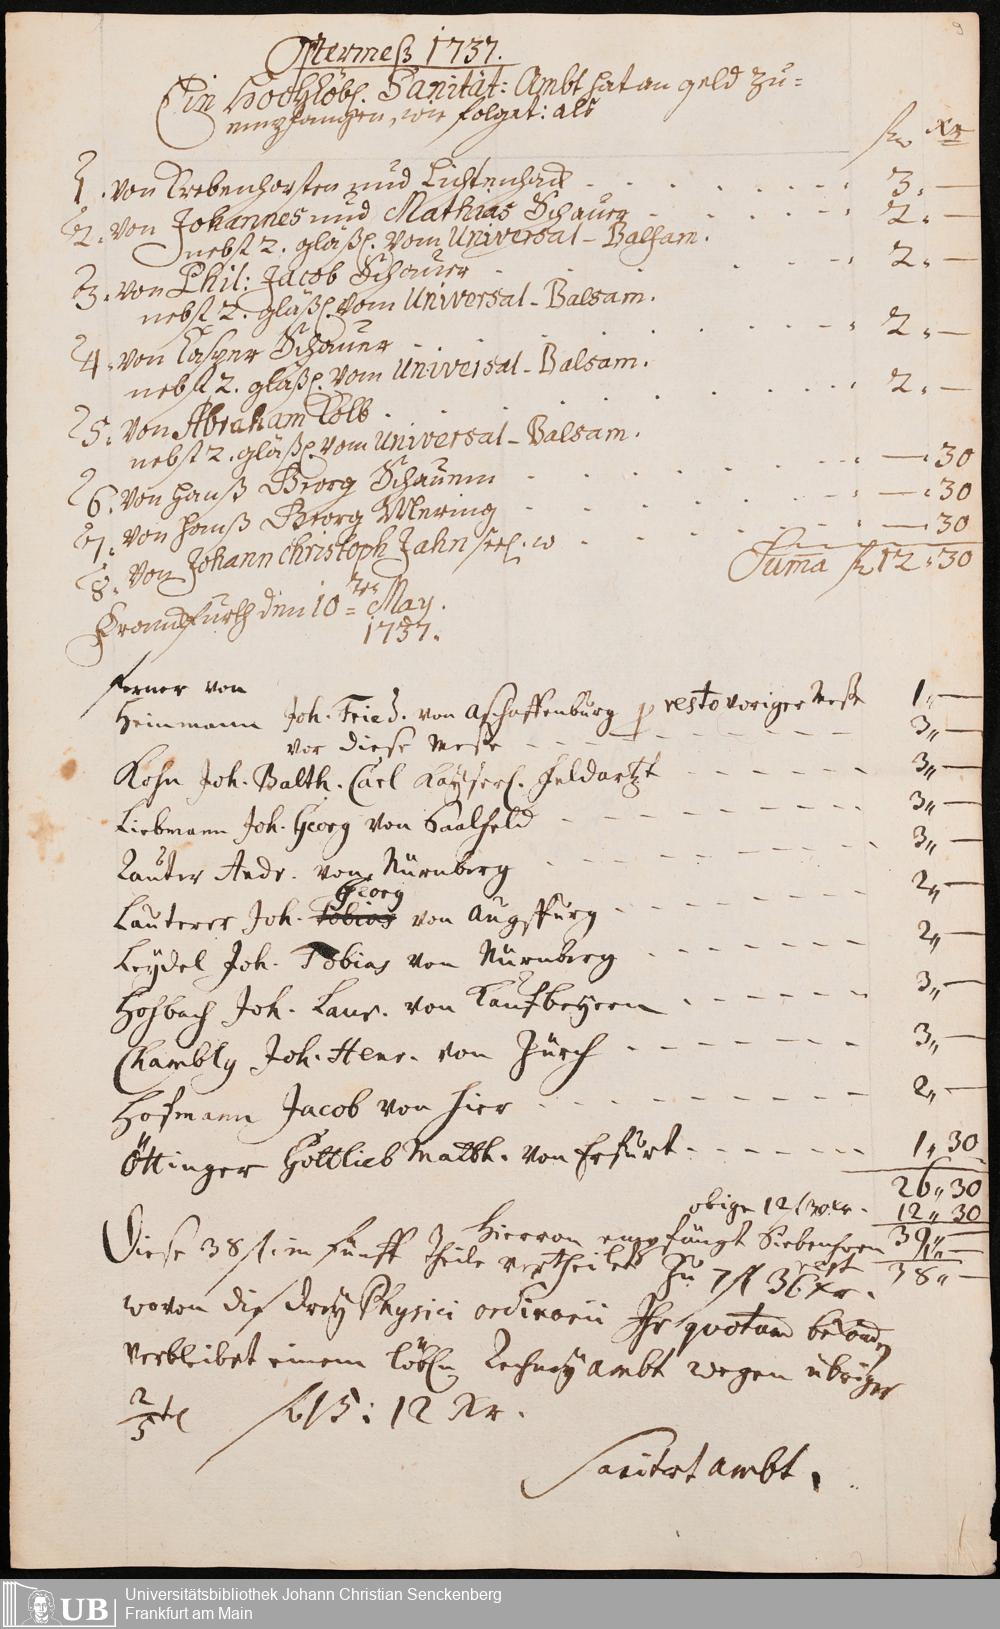 9
Ostermeß 1737.
Ein Hochlöbl. Sanität: Ambt hat an geld zu=
empfangen, wie folget: als
fl. Xr
1. von Krebenhorsten und Lichtenhan . . . . . . . 3. —
2. von Johannes und Mathias Schauer . . . . . 2. —
nebst 2. gläßl. vom Universal-Balsam.
3. von Phil: Jacob Schauer . . . . . 2. —
nebst 2. gläßl. vom Universal-Balsam.
4. von Casper Schauer . . . . . . 2. —
nebst 2. gläßl. vom Universal-Balsam.
5. von Abraham Kolb . . . . . . 2. —
nebst 2. gläßl. vom Universal-Balsam.
6. von Hanß Georg Schauern . . . . . — . 30
7. von Hanß Georg Mering . . . . . — . 30
8. von Johann Christoph Jahn seel. w . . . . . — . 30
Suma fl 12 . 30
Franckfurth den 10ten May.
1737.
ferner von
Heinmann Joh. Fried. von Aschaffenburg p resto voriger Meße 1„ —
vor diese Meße - - - - - 3„ —
Kohn Joh. Balth. Carl Kayserl. Feldartzt - - - - - 3„ —
Liebmann Joh. Georg von Saalfeld - - - - - 3„ —
Lauter Andr. von Nürnberg - - - - - 3„ —
Georg
Lauterer Joh. Tobias von Augspurg - - - - - 2„ —
Leydel Joh. Tobias von Nürnberg - - - - - 2„ —
Hosbach Joh. Laur. von Kaufbeyern - - - - - 3„ —
Chambly Joh. Henr. von Zürch - - - - - 3„ —
Hofmann Jacob von hier - - - - - 2„ —
Öttinger Gottlieb Matth. von Erfurt - - - - - 1„ 30
26„ 30
obige 12 f 30 xr. 12„ 30
Hiervon empfängt Siebenhoen 39„ —
1„ —
rest 38„ —
Diese 38 fl in fünff Theile vertheilet zu 7 fl 36 xr.
wovon die drey Physici ordinarii Ihr quotam
verbleibet einem löbln Rechney Ambt wegen übriger
2/5tel fl 15: 12 Xr.
Sanitet Ambt.
UB
Universitätsbibliothek Johann Christian Senckenberg
Frankfurt am Main